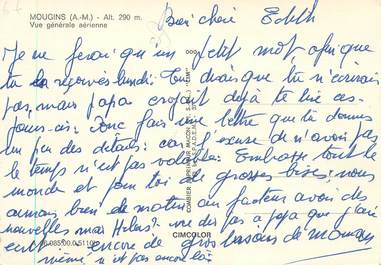 MOUGINS (A.-M.) - Alt. 290 m.
Vue générale aérienne
Bien chère Edith
Je ne ferai qu'un petit mot afin que
tu la reçoives lundi. Tu disais que tu n'écrirais
pas, mais papa croyait déjà te lire ces
jours-ci: Donc fais une lettre que tu donnes
un peu des détails: car l'excuse de n'avoir pas
le temps n'est pas valable. Embrasse tout le
monde et pour toi de grosses bises; nous
aimons bien de matin au facteur avoir des
nouvelles mais Hélas! ne dis pas à papa que j'ai
écrit: encore de gros baisers de maman
même n'est pas encore là
COMBIER IMPRIMEUR MACON
CIMCOLOR